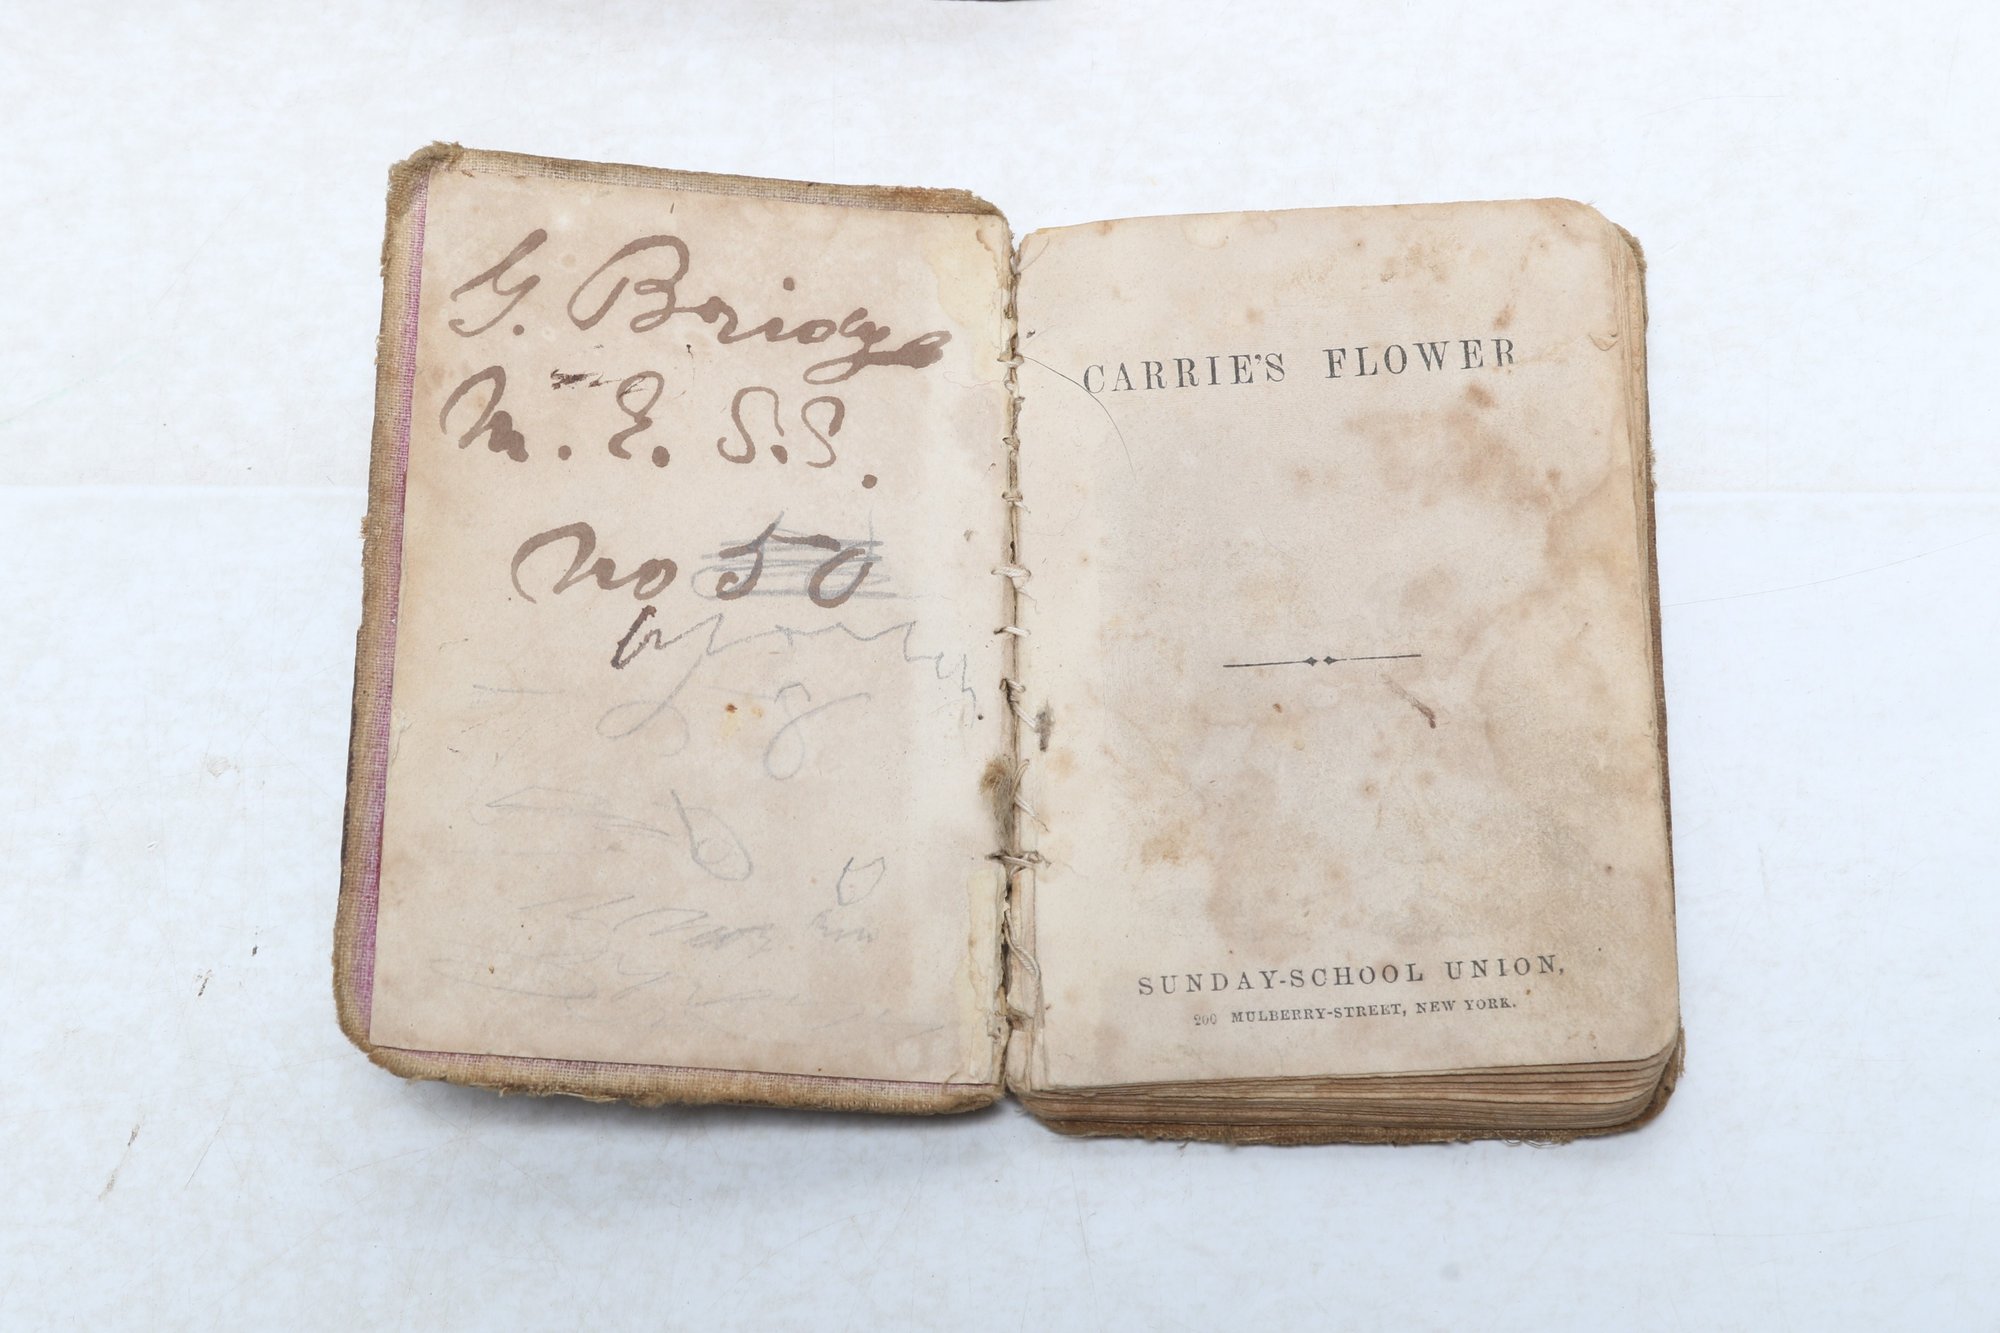 G. Bridge
M. E. S.S.
No 50
CARRIE'S FLOWER
SUNDAY-SCHOOL UNION,
200 MULBERRY-STREET, NEW YORK.